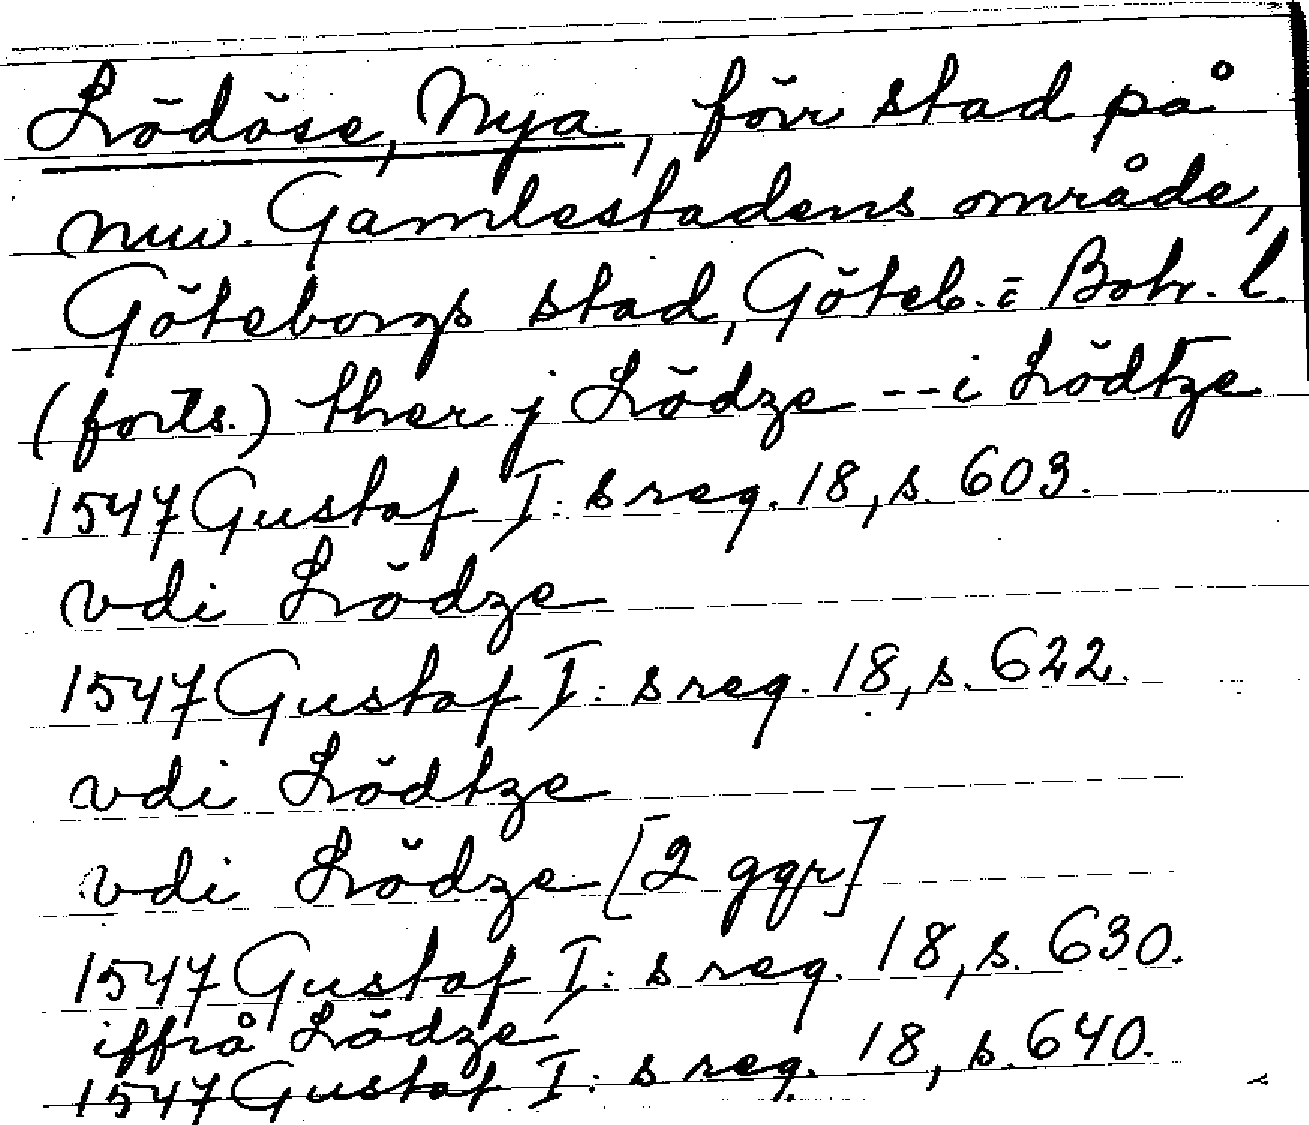 Lödöse, Nya, förr stad på
nuv. Gamlestadens område,
Göteborgs stad, Göteb. o. Boh. l.
(forts.) ther j Lödze -- i Lödtze
1547 Gustaf I:s reg. 18, s. 603.
vdi Lödze
1547 Gustaf I:s reg. 18, s. 622.
vdi Lödtze
vdi Lödze [2 ggr]
1547 Gustaf I:s reg. 18, s. 630.
iffrå Lödze
1547 Gustaf I:s reg. 18, s. 640.